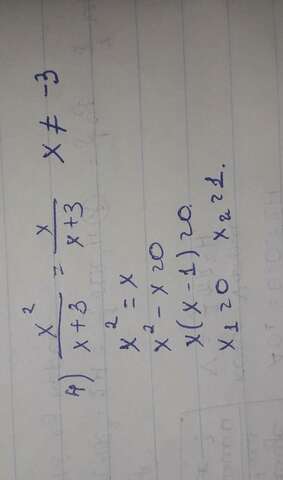 4) x²/(x+3) = x/(x+3) x ≠ -3
x² = x
x² - x = 0
x(x-1) = 0.
x₁ = 0 x₂ = 1.